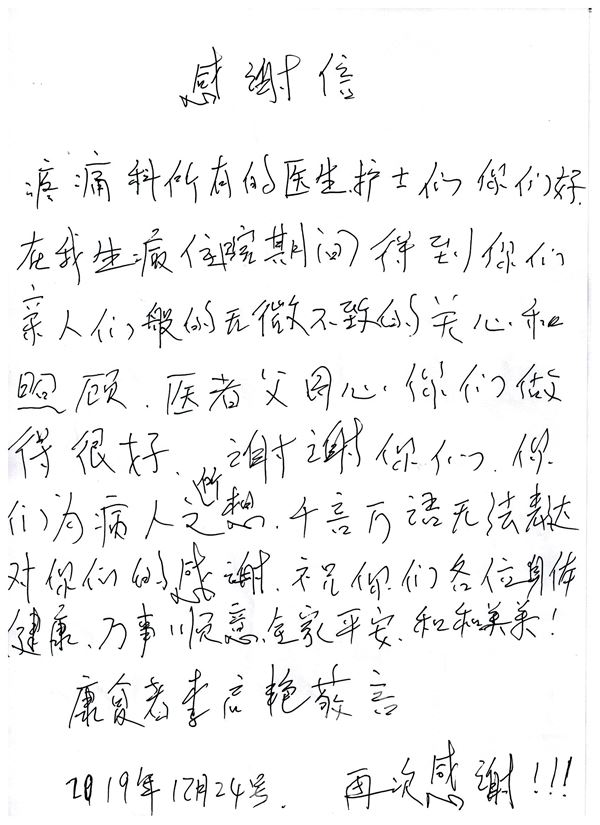 感谢信
疼痛科所有的医生.护士们 你们好.
在我生病住院期间 得到你们
亲人们般的无微不致的关心.和
照顾.医者父母心.你们做
得很好、谢谢你们.你
们为病人之所想.千言万语无法表达
对你们的感谢.祝你们各位身体
健康、万事顺意.全家平安.和和美美!
康复者李 艳敬言
2019年12月24号. 再次感谢!!!